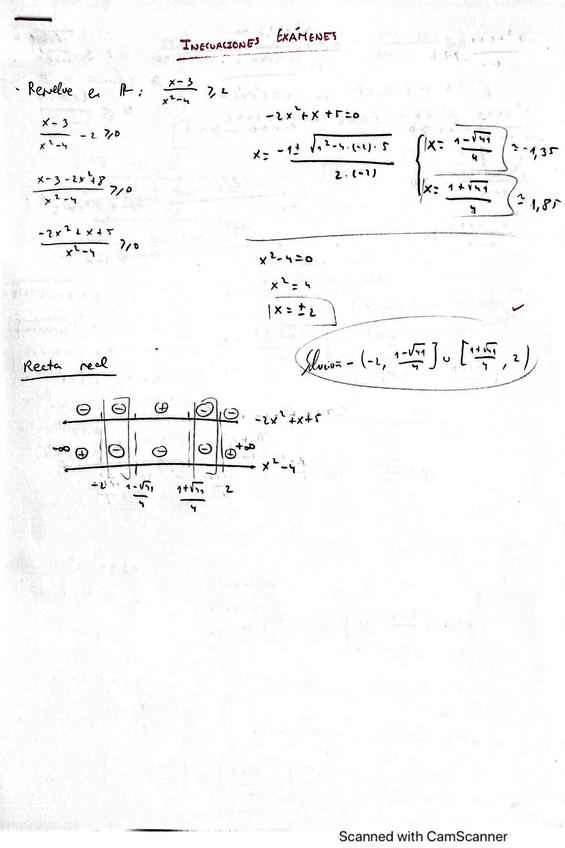 INECUACIONES EXÁMENES
· Resuelve en R: (x-3)/(x²-4) ≥ 2
(x-3)/(x²-4) - 2 ≥ 0
(x-3-2x²+8)/(x²-4) ≥ 0
(-2x²+x+5)/(x²-4) ≥ 0
-2x²+x+5=0
x= (-1± √(1²-4·(-2)·5))/(2·(-2))
x= (1-√41)/4 ≃ -1,35
x= (1+√41)/4 ≃ 1,85
x²-4=0
x²=4
x=±2
Solución - (-2, (1-√41)/4] ∪ [(1+√41)/4, 2)
Recta real
- - + - - -2x²+x+5
-∞ + - - - + +∞ x²-4
-2 (1-√41)/4 (1+√41)/4 2
Scanned with CamScanner